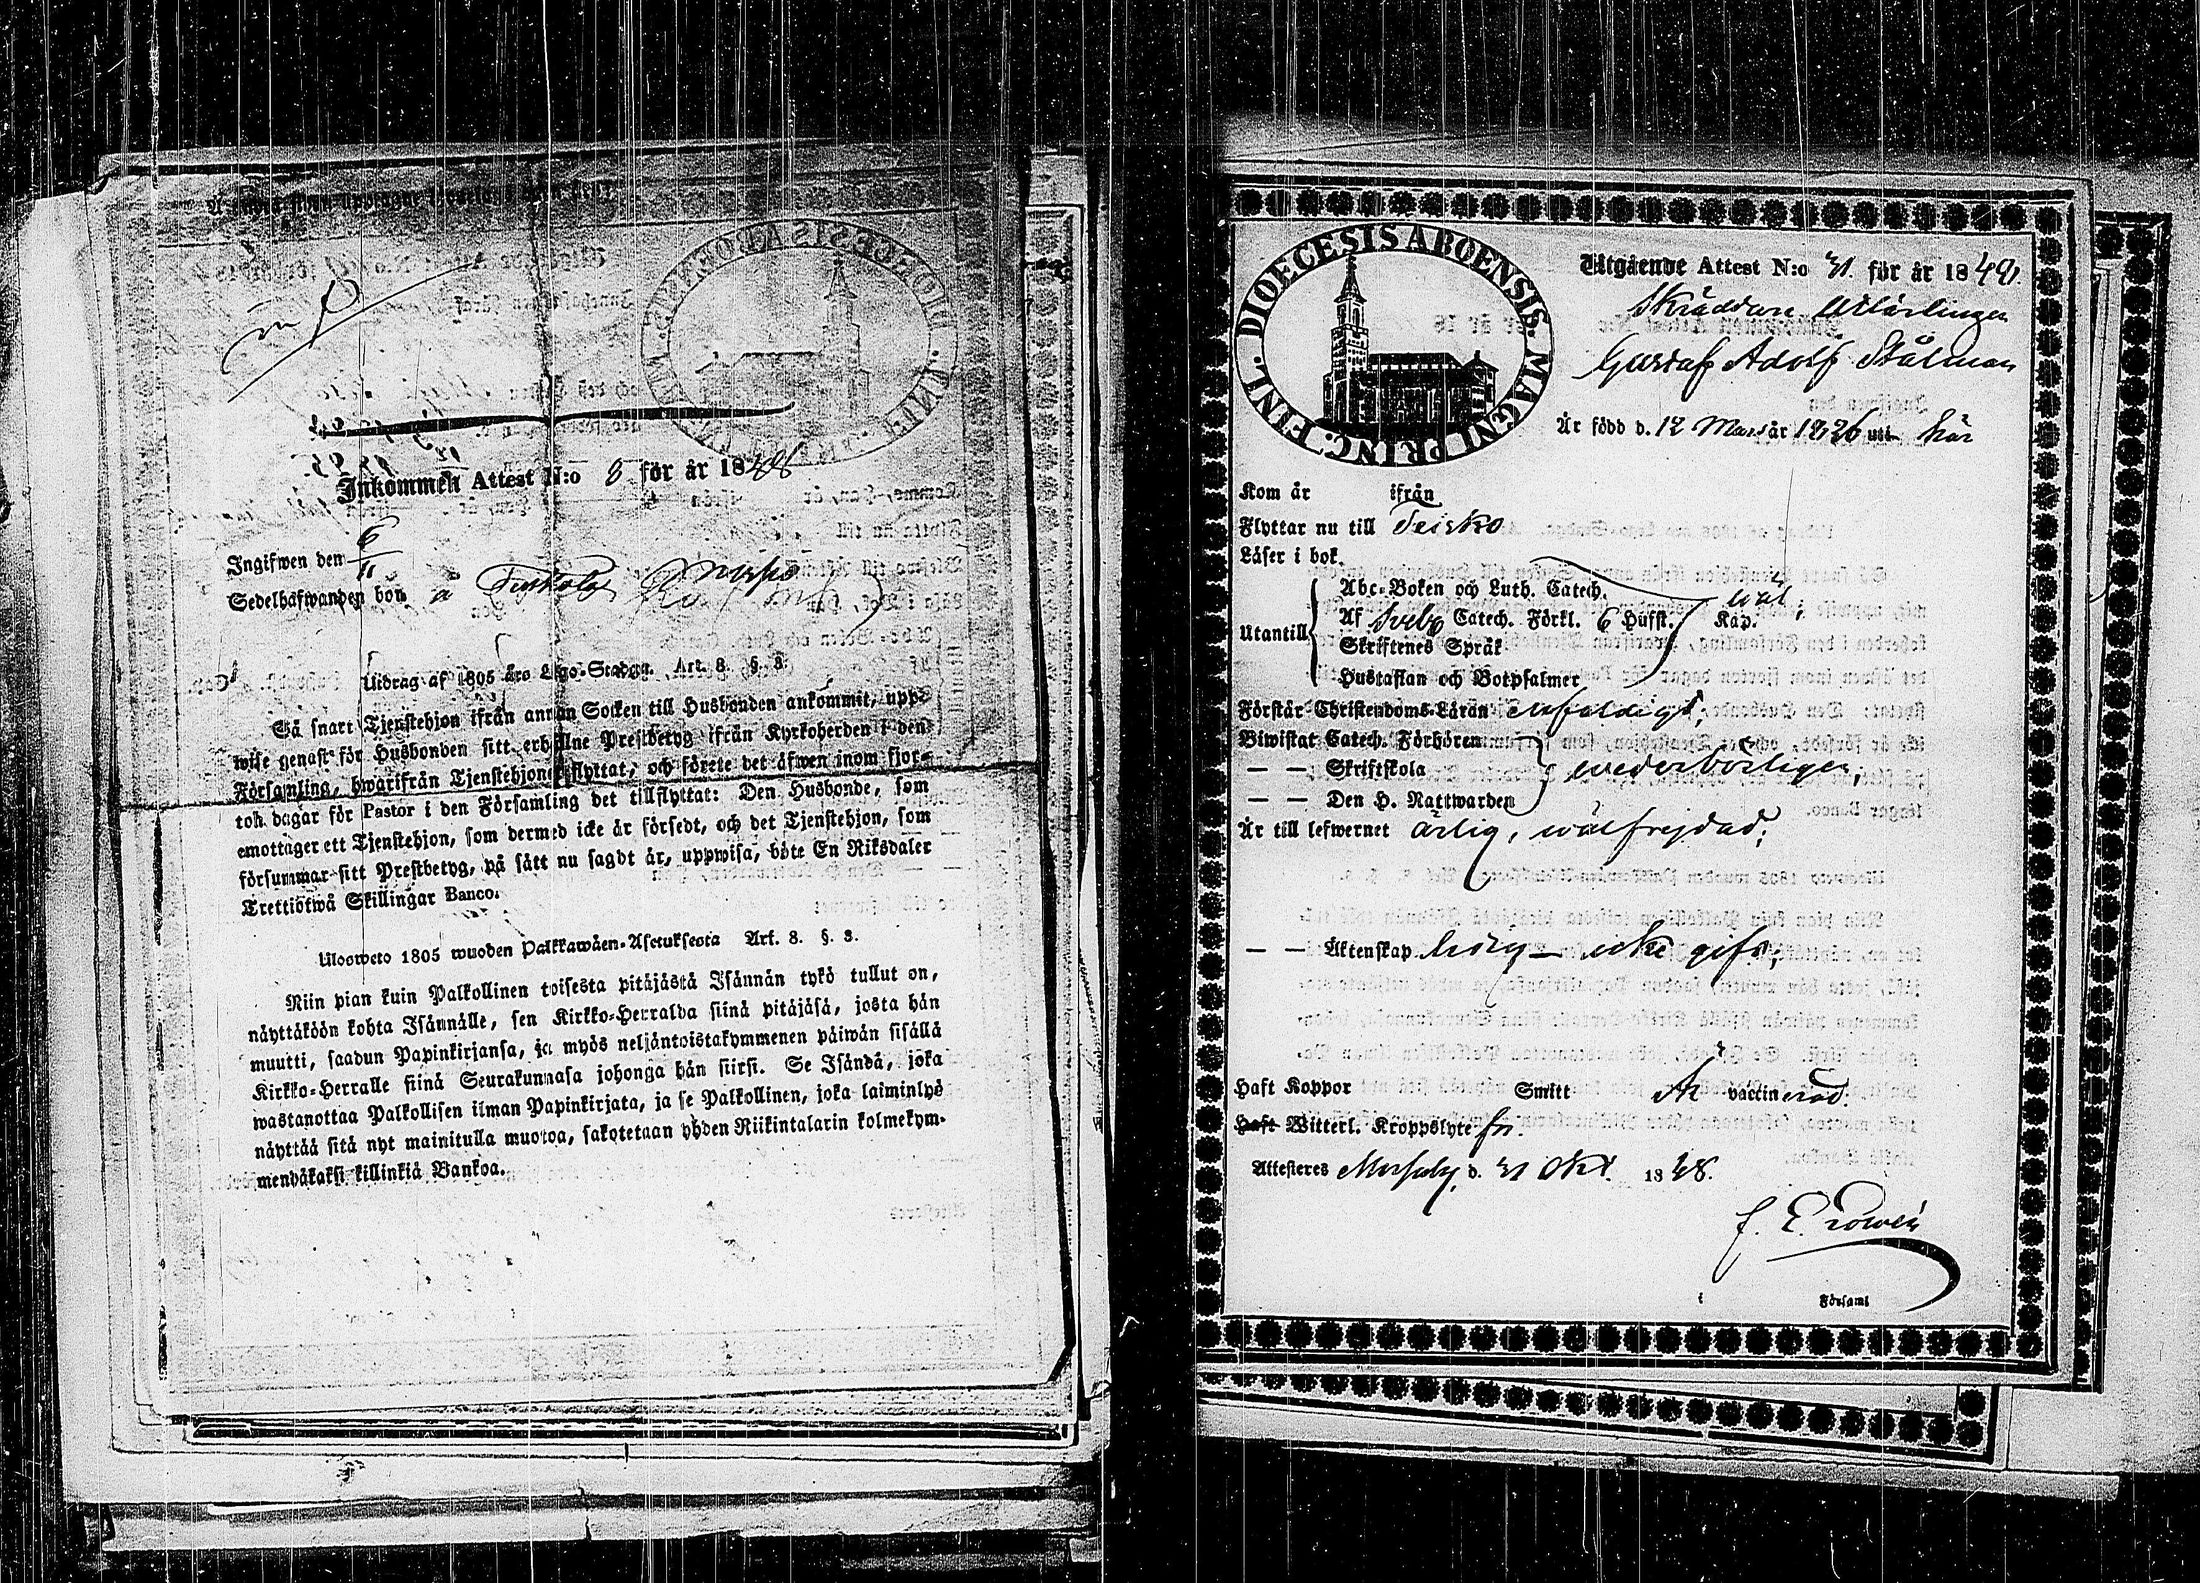 Inkommen Attest N:o 8 för år 1848
Ingifwen den 6/11
Sedelhafwanden bor å
Utdrag af 1805 års Lego-Stadga. Art. 8. §. 3.
Så snart Tjenstehjon ifrån annan Socken till Husbonden ankommit, upp-
wise genast för Husbonden sitt erhållne Prestbetyg ifrån Kyrkoherden i den
Församling, hwarifrån Tjenstehjonet flyttat, och förete det äfwen inom fjor-
ton dagar för Pastor i den Församling det tillflyttat: Den Husbonde, som
emottager ett Tjenstehjon, som dermed icke är försedt, och det Tjenstehjon, som
försummar sitt Prestbetyg, på sätt nu sagdt är, uppwisa, böte En Riksdaler
Trettiotwå Skillingar Banco.
Ulosweto 1805 wuoden Palkkawäen-Asetuksesta Art. 8. §. 3.
Niin pian kuin Palkollinen toisesta pitäjästä Isännän tykö tullut on,
näyttäköön kohta Isännälle, sen Kirkko-Herralda siinä pitäjäsä, josta hän
muutti, saadun Papinkirjansa, ja myös neljäntoistakymmenen päiwän sisällä
Kirkko-Herralle siinä Seurakunnasa johonga hän siirsi. Se Isändä, joka
wastanottaa Palkollisen ilman Papinkirjata, ja se Palkollinen, joka laiminlyö
näyttää sitä nyt mainitulla muotoa, sakotetaan yhden Riikintalarin kolmekym-
mendäkaksi killinkiä Bankoa.
DIOECESIS ABOENSIS. MAGNI PRINC. FINL.
Utgående Attest N:o 31. för år 1848.
Skräddare Lärlingen
Gustaf Adolf Stålman
Är född d. 12 Mars år 1826 uti här
Kom år ifrån
Flyttar nu till Teisko
Läser i bok.
Abc-Boken och Luth. Catech.
Utantill Af Sveb. Catech. Förkl. 6 Hufst. Kap. wäl;
Skriftenes Språk
Hustaflan och Botpsalmer
Förstår Christendoms-Läran enfaldigt;
Biwistat Catech. Förhören
— — Skriftskola wederbörligen;
— — Den H. Nattwarden
Är till lefwernet ärlig, wälfrejdad;
— — Äktenskap ledig — icke gift;
Haft Koppor Smitt Är vaccinerad.
Haft Witterl. Kroppslyte fri.
Attesteres Messuby, d. 31 Okt. 1848.
Församl